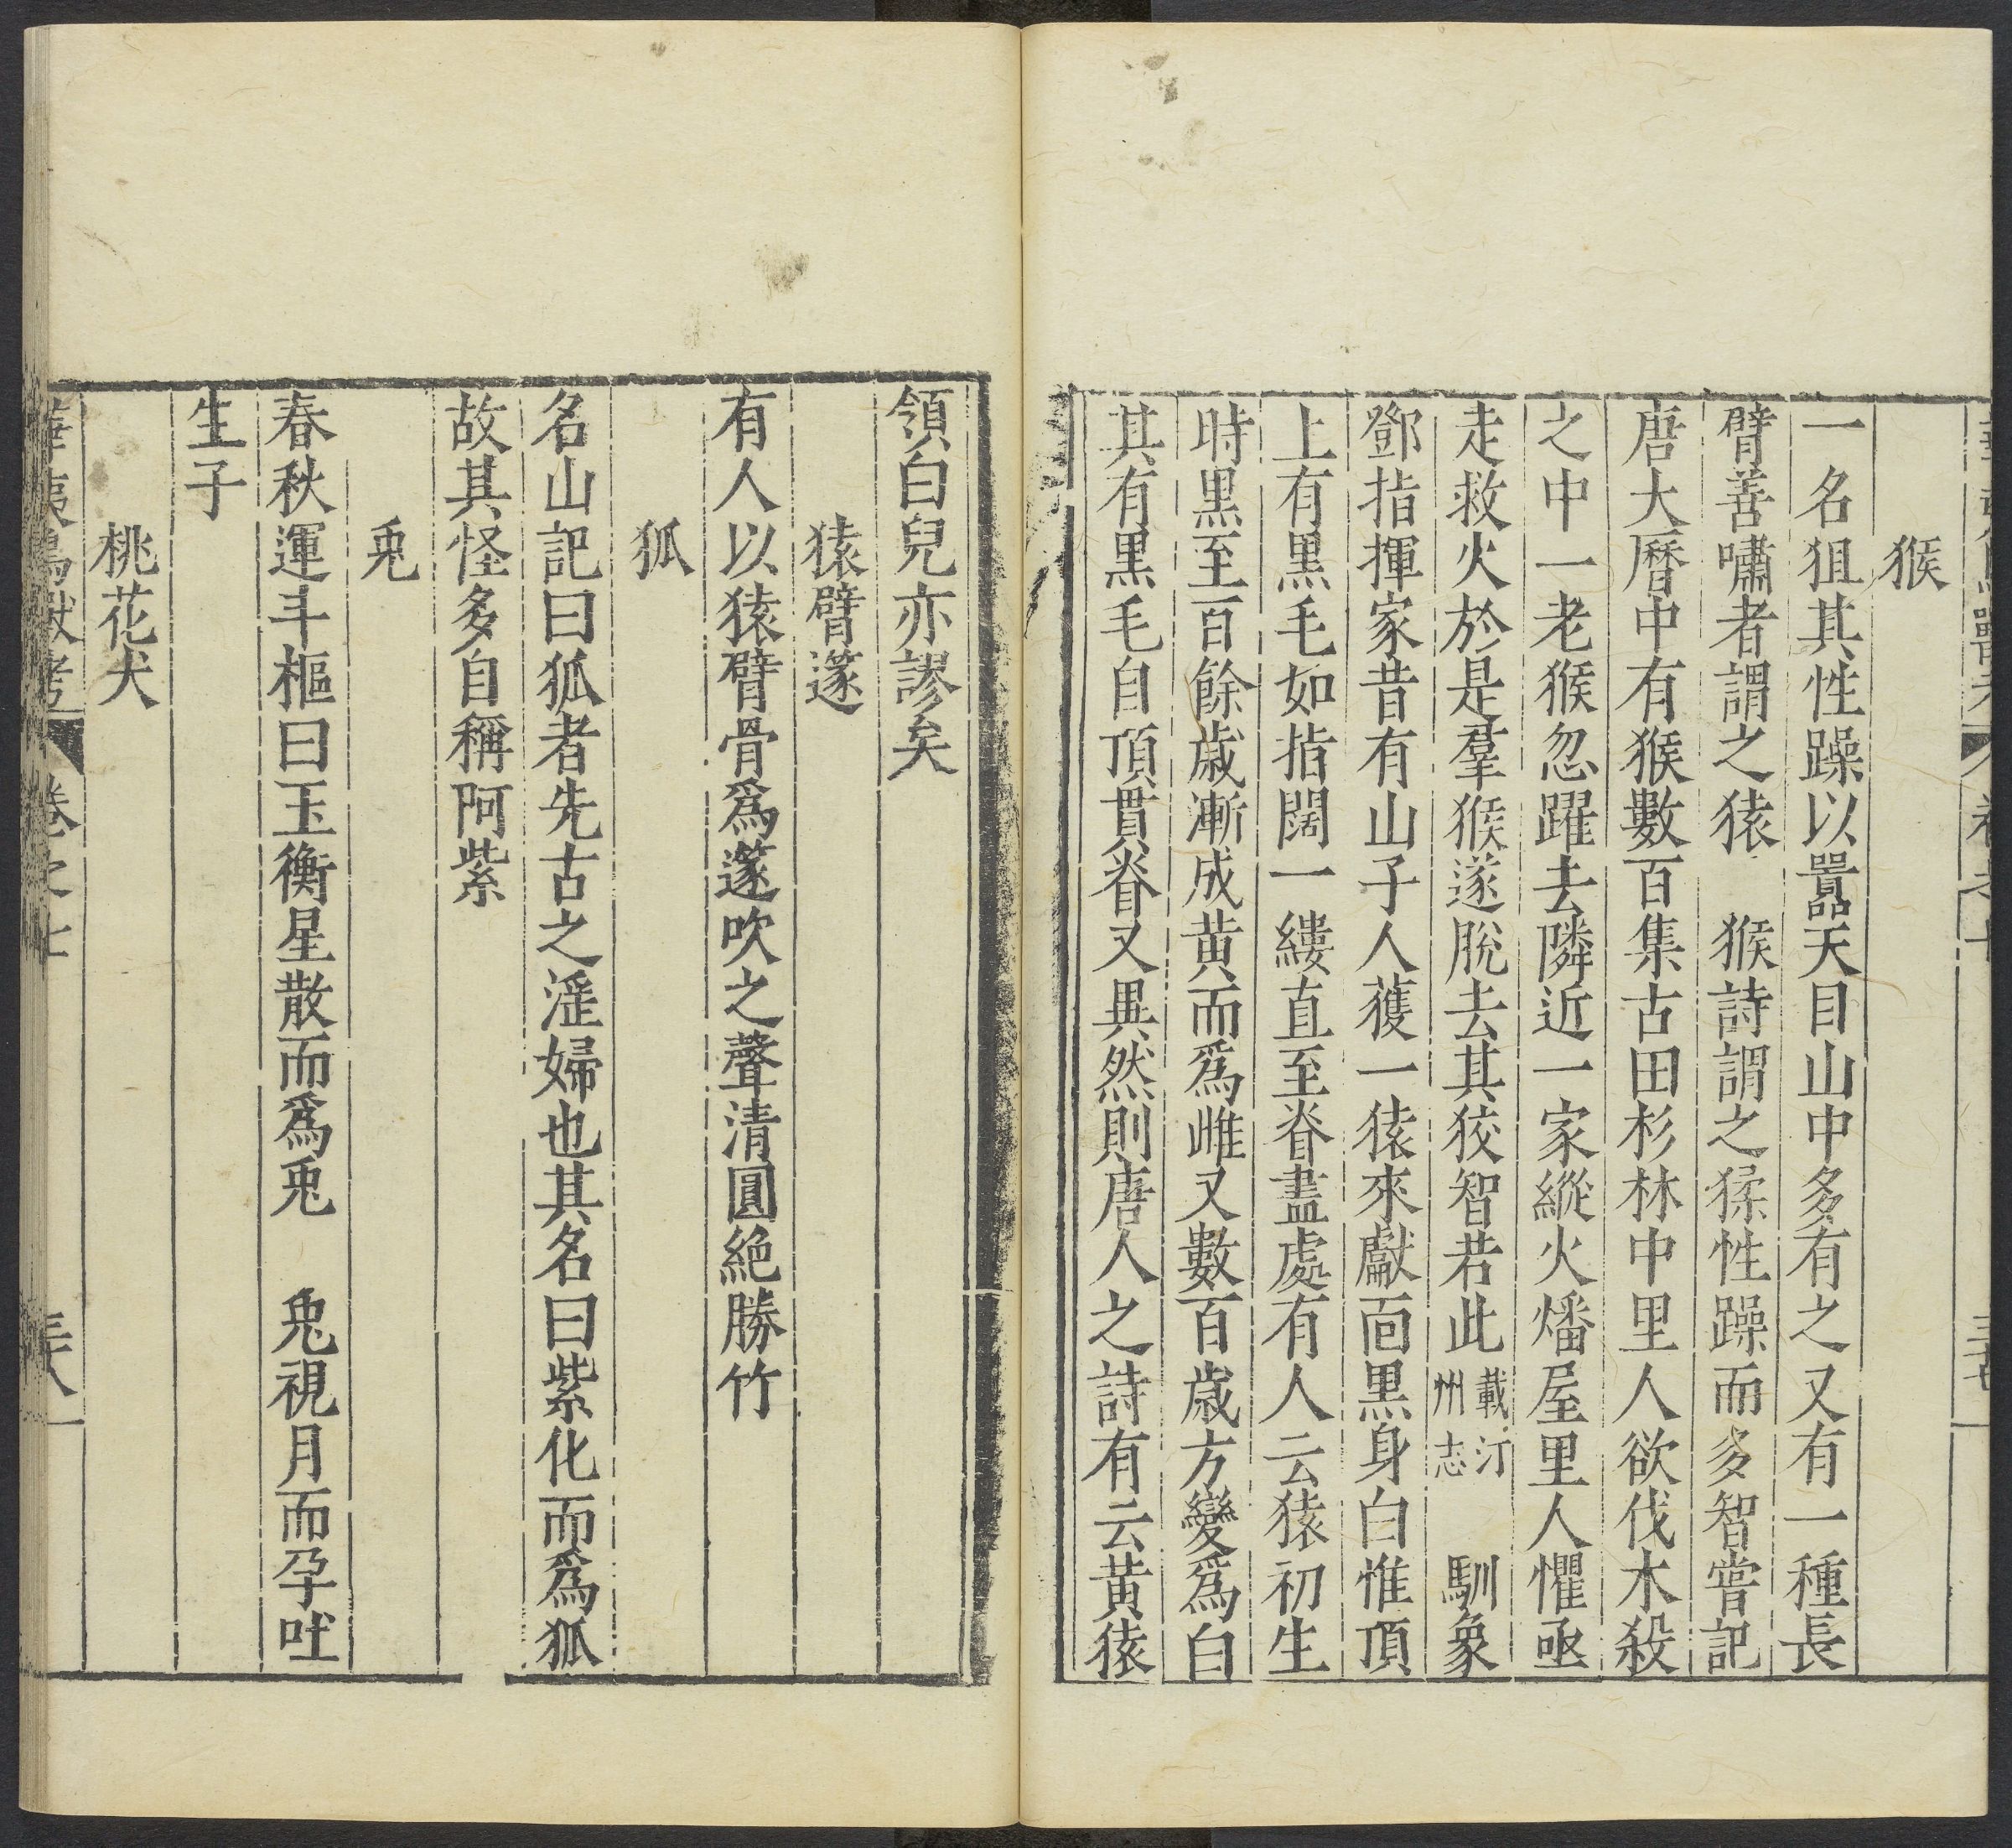 猴
一名狙其性躁以嚣天目山中多有之又有一種長
臂善嘯者謂之猿　猴詩謂之猱性躁而多智嘗記
唐大曆中有猴數百集古田杉林中里人欲伐木殺
之中一老猴忽躍去隣近一家縱火燔屋里人懼亟
走救火於是羣猴遂脫去其狡智若此載汀州志　馴象
鄧指揮家昔有山子人獲一猿來獻靣黒身白惟頂
上有黒毛如指闊一縷直至脊盡處有人云猿初生
時黒至百餘歳漸成黄而爲雌又數百歳方變爲白
其有黒毛自頂貫脊又異然則唐人之詩有云黄猿
領白兒亦謬矣
猿臂篴
有人以猿臂骨爲篴吹之聲清圓絶勝竹
狐
名山記曰狐者先古之淫婦也其名曰紫化而爲狐
故其怪多自稱阿紫
兎
春秋運斗樞曰玉衡星散而爲兎　兎視月而孕吐
生子
桃花犬
華夷鳥獸考　卷之七　三十八